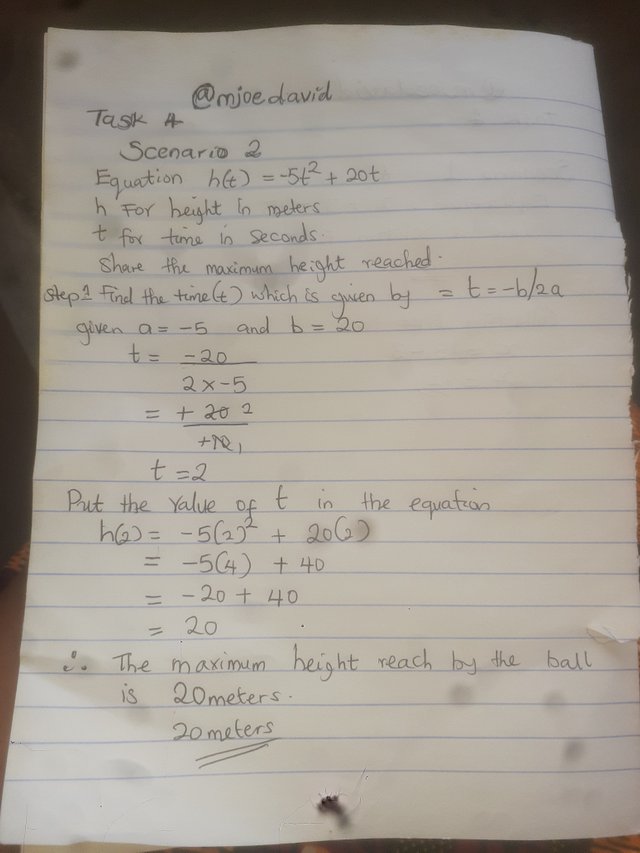 @mjoedavid
Task 4
Scenario 2
Equation h(t) = -5t² + 20t
h For height in meters
t for time in seconds.
Share the maximum height reached.
Step 1 Find the time(t) which is given by = t = -b/2a
given a = -5 and b = 20
t = -20
2 x -5
= + 20 2
+10 1
t = 2
Put the value of t in the equation
h(2) = -5(2)² + 20(2)
= -5(4) + 40
= -20 + 40
= 20
∴ The maximum height reach by the ball
is 20meters.
20meters